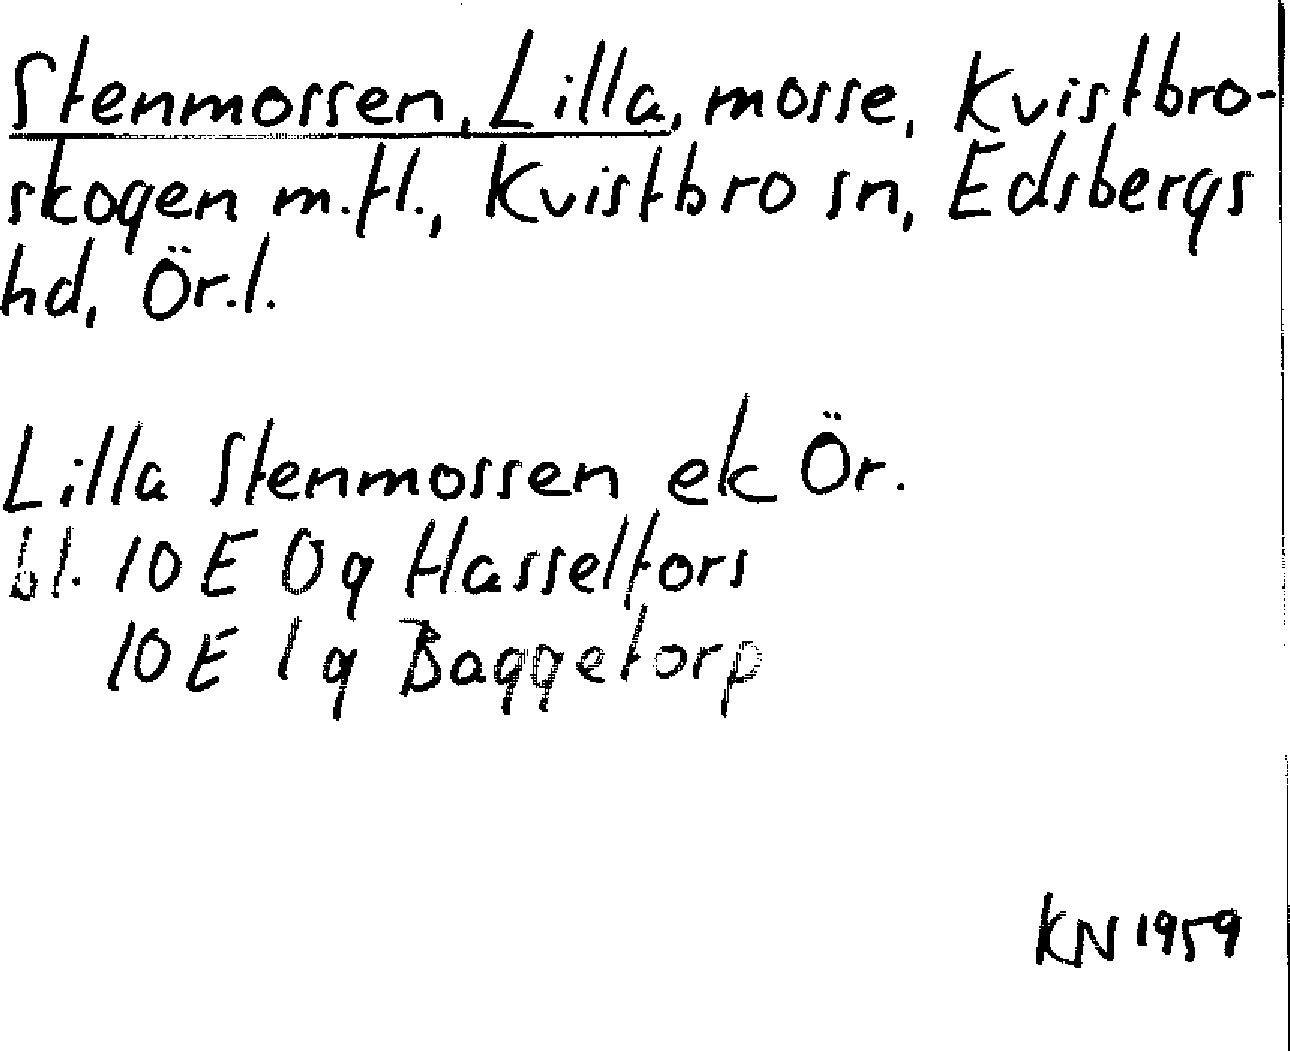 Stenmossen, Lilla, mosse, Kvistbro-
skogen m.fl., Kvistbro sn, Edsbergs
hd, Ör.l.
Lilla Stenmossen ek Ör.
bl. 10 E 0g Hasselfors
10 E 1g Baggetorp
KN 1959